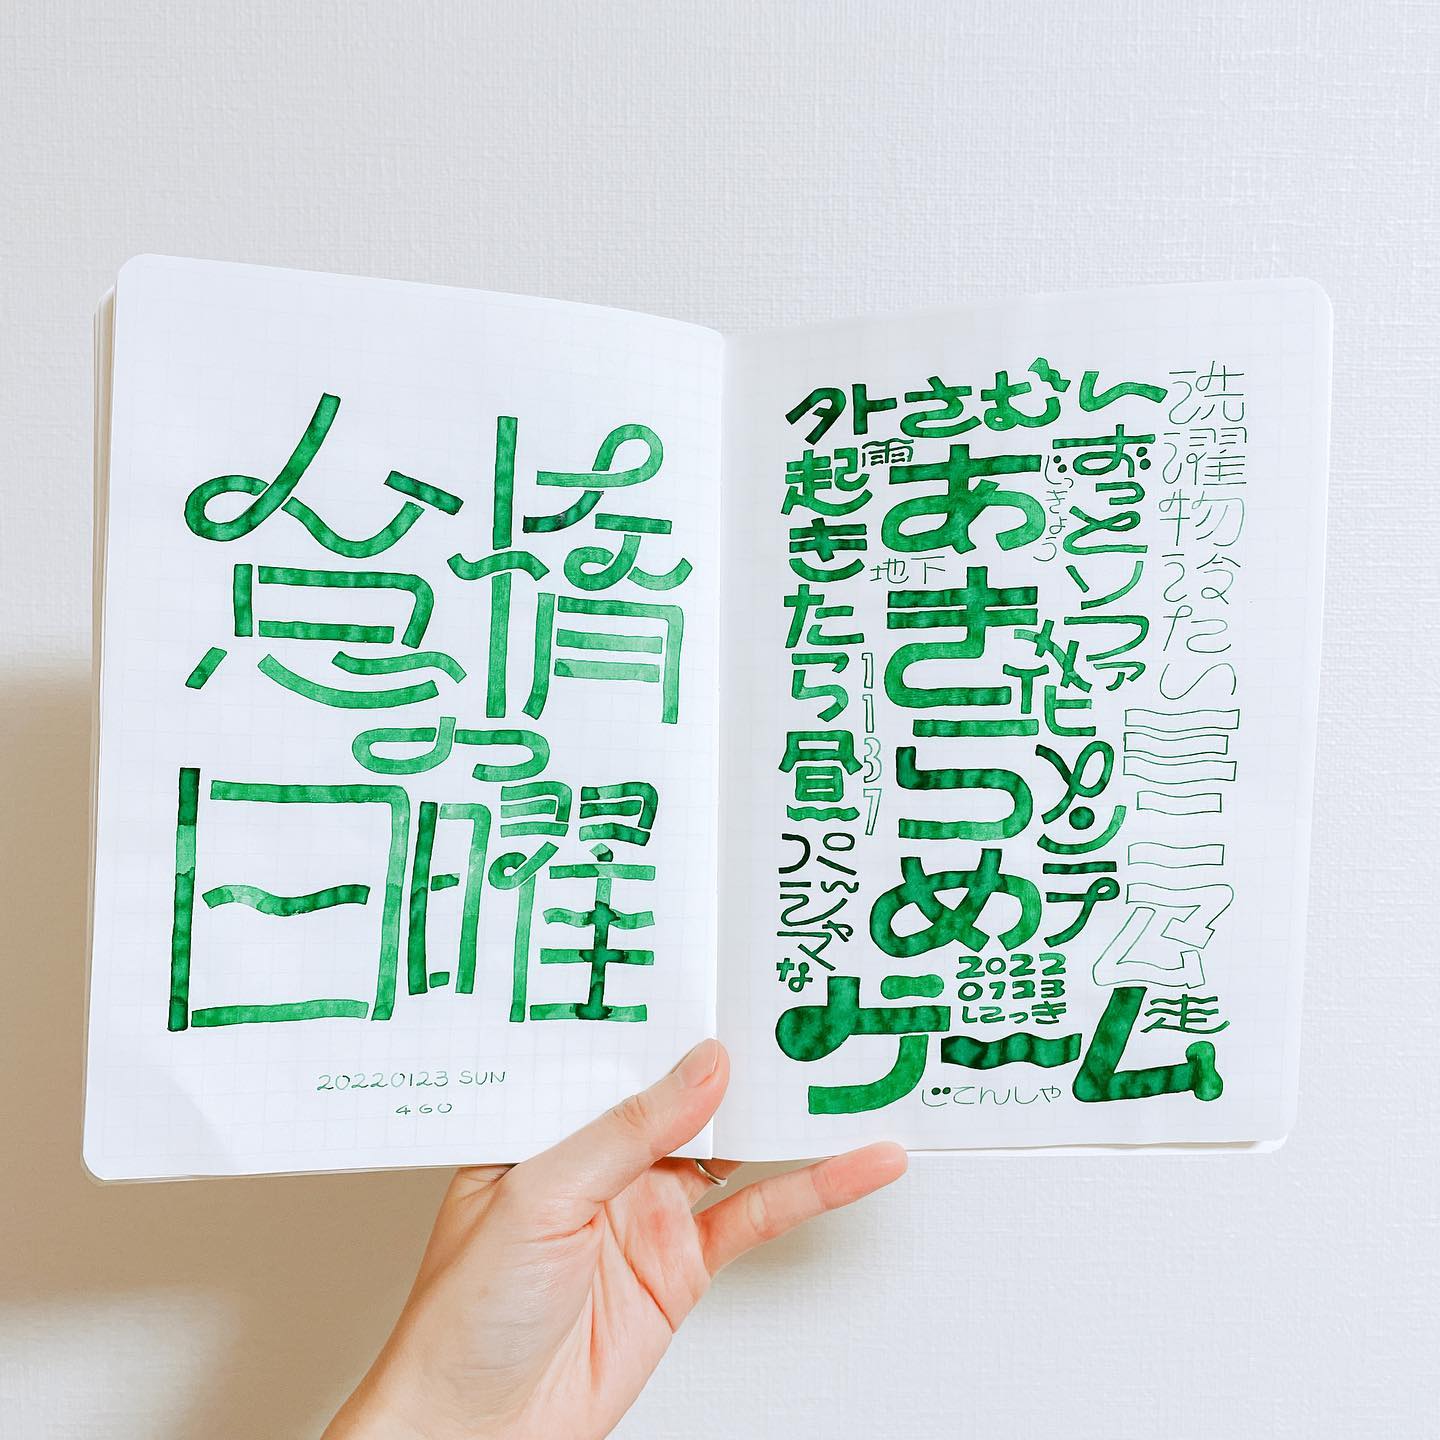 怠惰
の
日曜
20220123 SUN
4GO
外さむい
洗濯物冷たい
ずっとソファ
じっきょう
雨
起きたら昼
1137
パジャマな
地下
あきらめ
メンテ
2022
0123
にっき
ゲーム
走
じてんしゃ